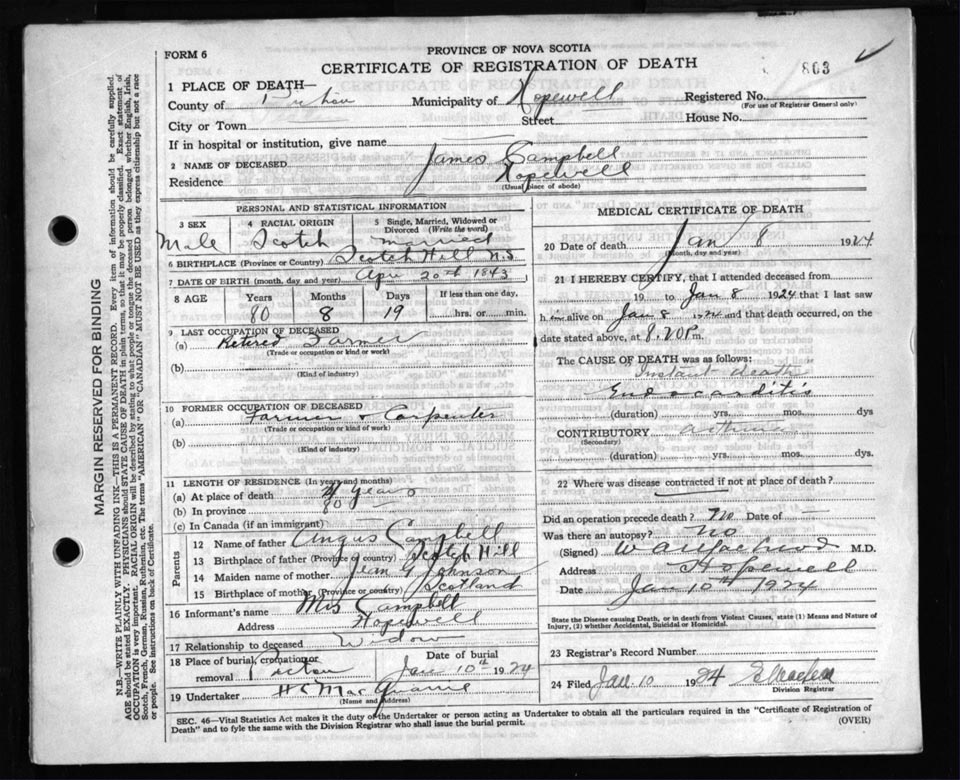 FORM 6
PROVINCE OF NOVA SCOTIA
CERTIFICATE OF REGISTRATION OF DEATH
803
1 PLACE OF DEATH—
County of Pictou Municipality of Hopewell Registered No.
(For use of Registrar General only)
City or Town Street House No.
If in hospital or institution, give name —
2 NAME OF DECEASED James Campbell
Residence Hopewell
(Usual place of abode)
PERSONAL AND STATISTICAL INFORMATION
3 SEX Male
4 RACIAL ORIGIN Scotch
5 Single, Married, Widowed or Divorced (Write the word) Married
6 BIRTHPLACE (Province or Country) Scotch Hill N.S.
7 DATE OF BIRTH (month, day and year) Apr 20th 1843
8 AGE Years Months Days If less than one day,
80 8 19 hrs. or min.
9 LAST OCCUPATION OF DECEASED
(a) Retired Farmer
(Trade or occupation or kind or work)
(b)
(Kind of industry)
10 FORMER OCCUPATION OF DECEASED
(a) Farmer & Carpenter
(Trade or occupation or kind of work)
(b)
(Kind of industry)
11 LENGTH OF RESIDENCE (In years and months)
(a) At place of death years
(b) In province 80 —
(c) In Canada (if an immigrant)
Parents
12 Name of father Angus Campbell
13 Birthplace of father (Province or country) Scotch Hill
14 Maiden name of mother Jean G Johnson
15 Birthplace of mother (Province or country) Scotland
16 Informant's name Mrs Campbell
Address Hopewell
17 Relationship to deceased Widow
18 Place of burial, cremation or removal Pictou
Date of burial Jan 10th 1924
19 Undertaker H MacQuarrie
(Name and Address)
MEDICAL CERTIFICATE OF DEATH
20 Date of death Jan 8 1924
(Month, day and year)
21 I HEREBY CERTIFY, that I attended deceased from
19 to Jan 8 1924 that I last saw
him alive on Jan 8 1924 and that death occurred, on
date stated above, at 8.20 P m.
The CAUSE OF DEATH was as follows:
Instant death
Endocarditis
(duration) yrs. mos. dys
CONTRIBUTORY asthma
(Secondary)
(duration) yrs. mos. dys.
22 Where was disease contracted if not at place of death?
Did an operation precede death? No Date of —
Was there an autopsy? No
(Signed) M.D.
Address Hopewell
Date Jan 10th 1924
State the Disease causing Death, or in death from Violent Causes, state (1) Means and Nature of Injury, (2) whether Accidental, Suicidal or Homicidal.
23 Registrar's Record Number
24 Filed Jan. 10 1924
Division Registrar
SEC. 46—Vital Statistics Act makes it the duty of the Undertaker or person acting as Undertaker to obtain all the particulars required in the "Certificate of Registration of
Death" and to fyle the same with the Division Registrar who shall issue the burial permit. (OVER)
MARGIN RESERVED FOR BINDING
N.B.—WRITE PLAINLY WITH UNFADING INK—THIS IS A PERMANENT RECORD. Every item of information should be carefully supplied.
AGE should be stated EXACTLY. PHYSICIANS should STATE CAUSE OF DEATH in plain terms, so that it may be properly classified. Exact statement of
OCCUPATION is very important. RACIAL ORIGIN will be described by stating to what people or tongue the deceased person belonged whether English, Irish,
Scotch, French, German, Russian, Ruthenian, etc. The terms "AMERICAN" OR "CANADIAN" MUST NOT BE USED as they express citizenship but not a race
or people. See instructions on back of Certificate.